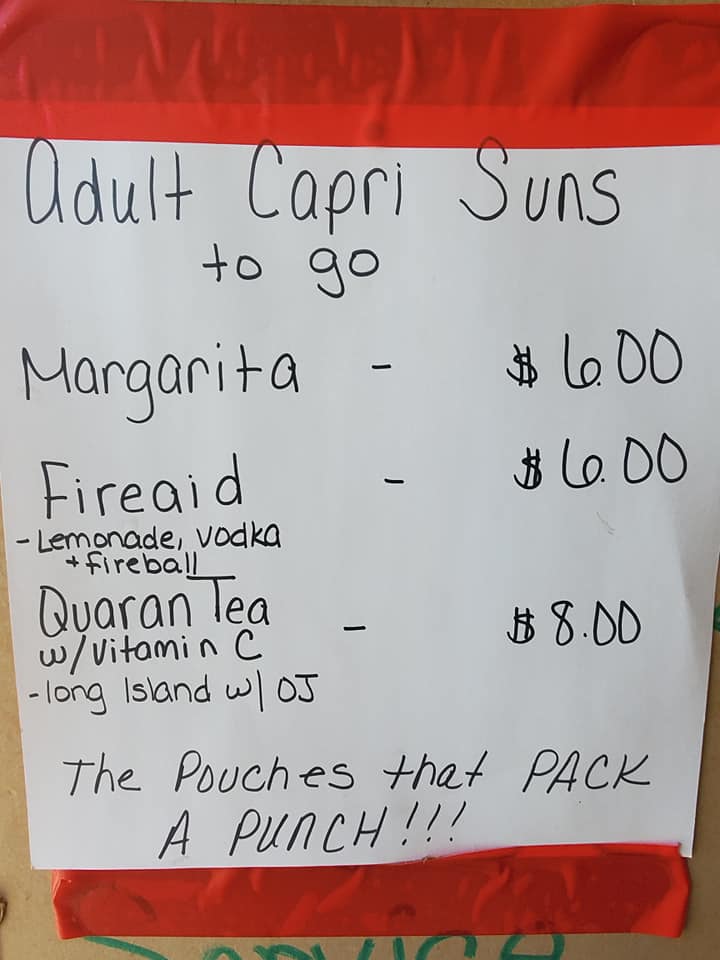 Adult Capri Suns
to go
Margarita - $6.00
Fireaid - $6.00
- Lemonade, vodka
+ fireball
QuaranTea - $8.00
w/ vitamin C
- long Island w/ OJ
The Pouches that PACK
A PUNCH!!!